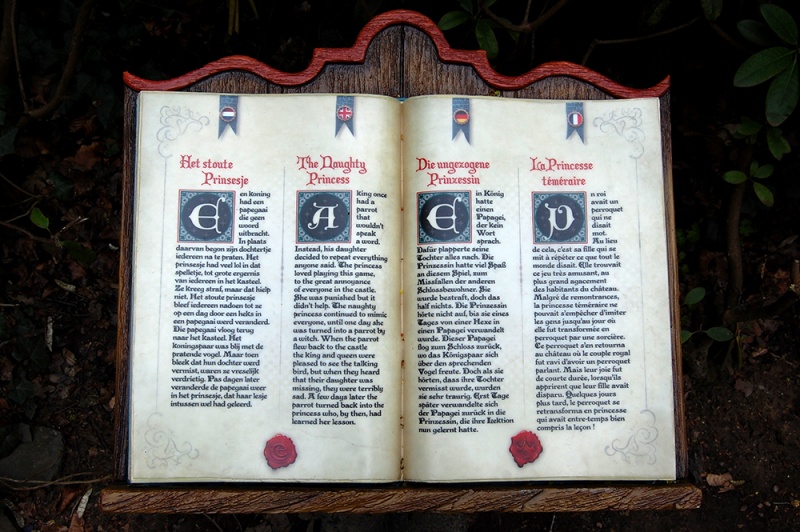 Het stoute
Prinsesje
Een koning
had een
papegaai
die geen
woord
uitbracht.
In plaats
daarvan begon zijn dochtertje
iedereen na te praten. Het
prinsesje had veel lol in dat
spelletje, tot grote ergernis
van iedereen in het kasteel.
Ze kreeg straf, maar dat hielp
niet. Het stoute prinsesje
bleef iedereen nadoen tot ze
op een dag door een heks in
een papegaai werd veranderd.
Die papegaai vloog terug
naar het kasteel. Het
Koningspaar was blij met de
pratende vogel. Maar toen
bleek dat hun dochter werd
vermist, waren ze vreselijk
verdrietig. Pas dagen later
veranderde de papegaai weer
in het prinsesje, dat haar lesje
intussen wel had geleerd.
The Naughty
Princess
A king once
had a
parrot
that
wouldn't
speak
a word.
Instead, his daughter
decided to repeat everything
anyone said. The princess
loved playing this game,
to the great annoyance
of everyone in the castle.
She was punished but it
didn't help. The naughty
princess continued to mimic
everyone, until one day she
was turned into a parrot by
a witch. When the parrot
flew back to the castle
the king and queen were
pleased to see the talking
bird, but when they heard
that their daughter was
missing, they were terribly
sad. A few days later the
parrot turned back into the
princess who, by then, had
learned her lesson.
Die ungezogene
Prinzessin
Ein König
hatte
einen
Papagei,
der kein
Wort
sprach.
Dafür plapperte seine
Tochter alles nach. Die
Prinzessin hatte viel Spaß
an diesem Spiel, zum
Missfallen der anderen
Schlossbewohner. Sie
wurde bestraft, doch das
half nichts. Die Prinzessin
hörte nicht auf, bis sie eines
Tages von einer Hexe in
einen Papagei verwandelt
wurde. Dieser Papagei
flog zum Schloss zurück,
wo das Königspaar sich
über den sprechenden
Vogel freute. Doch als sie
hörten, dass ihre Tochter
vermisst wurde, wurden
sie sehr traurig. Erst Tage
später verwandelte sich
der Papagei zurück in die
Prinzessin, die ihre Lektion
nun gelernt hatte.
La Princesse
téméraire
Un roi
avait un
perroquet
qui ne
disait
mot.
Au lieu
de cela, c'est sa fille qui se
mit à répéter ce que tout le
monde disait. Elle trouvait
ce jeu très amusant, au
plus grand agacement
des habitants du château.
Malgré de remontrances,
la princesse téméraire ne
pouvait s'empêcher d'imiter
les gens jusqu'au jour où
elle fut transformée en
perroquet par une sorcière.
Ce perroquet s'en retourna
au château où le couple royal
fut ravi d'avoir un perroquet
parlant. Mais leur joie fut
de courte durée, lorsqu'ils
apprirent que leur fille avait
disparu. Quelques jours
plus tard, le perroquet se
retransforma en princesse
qui avait entre-temps bien
compris la leçon !